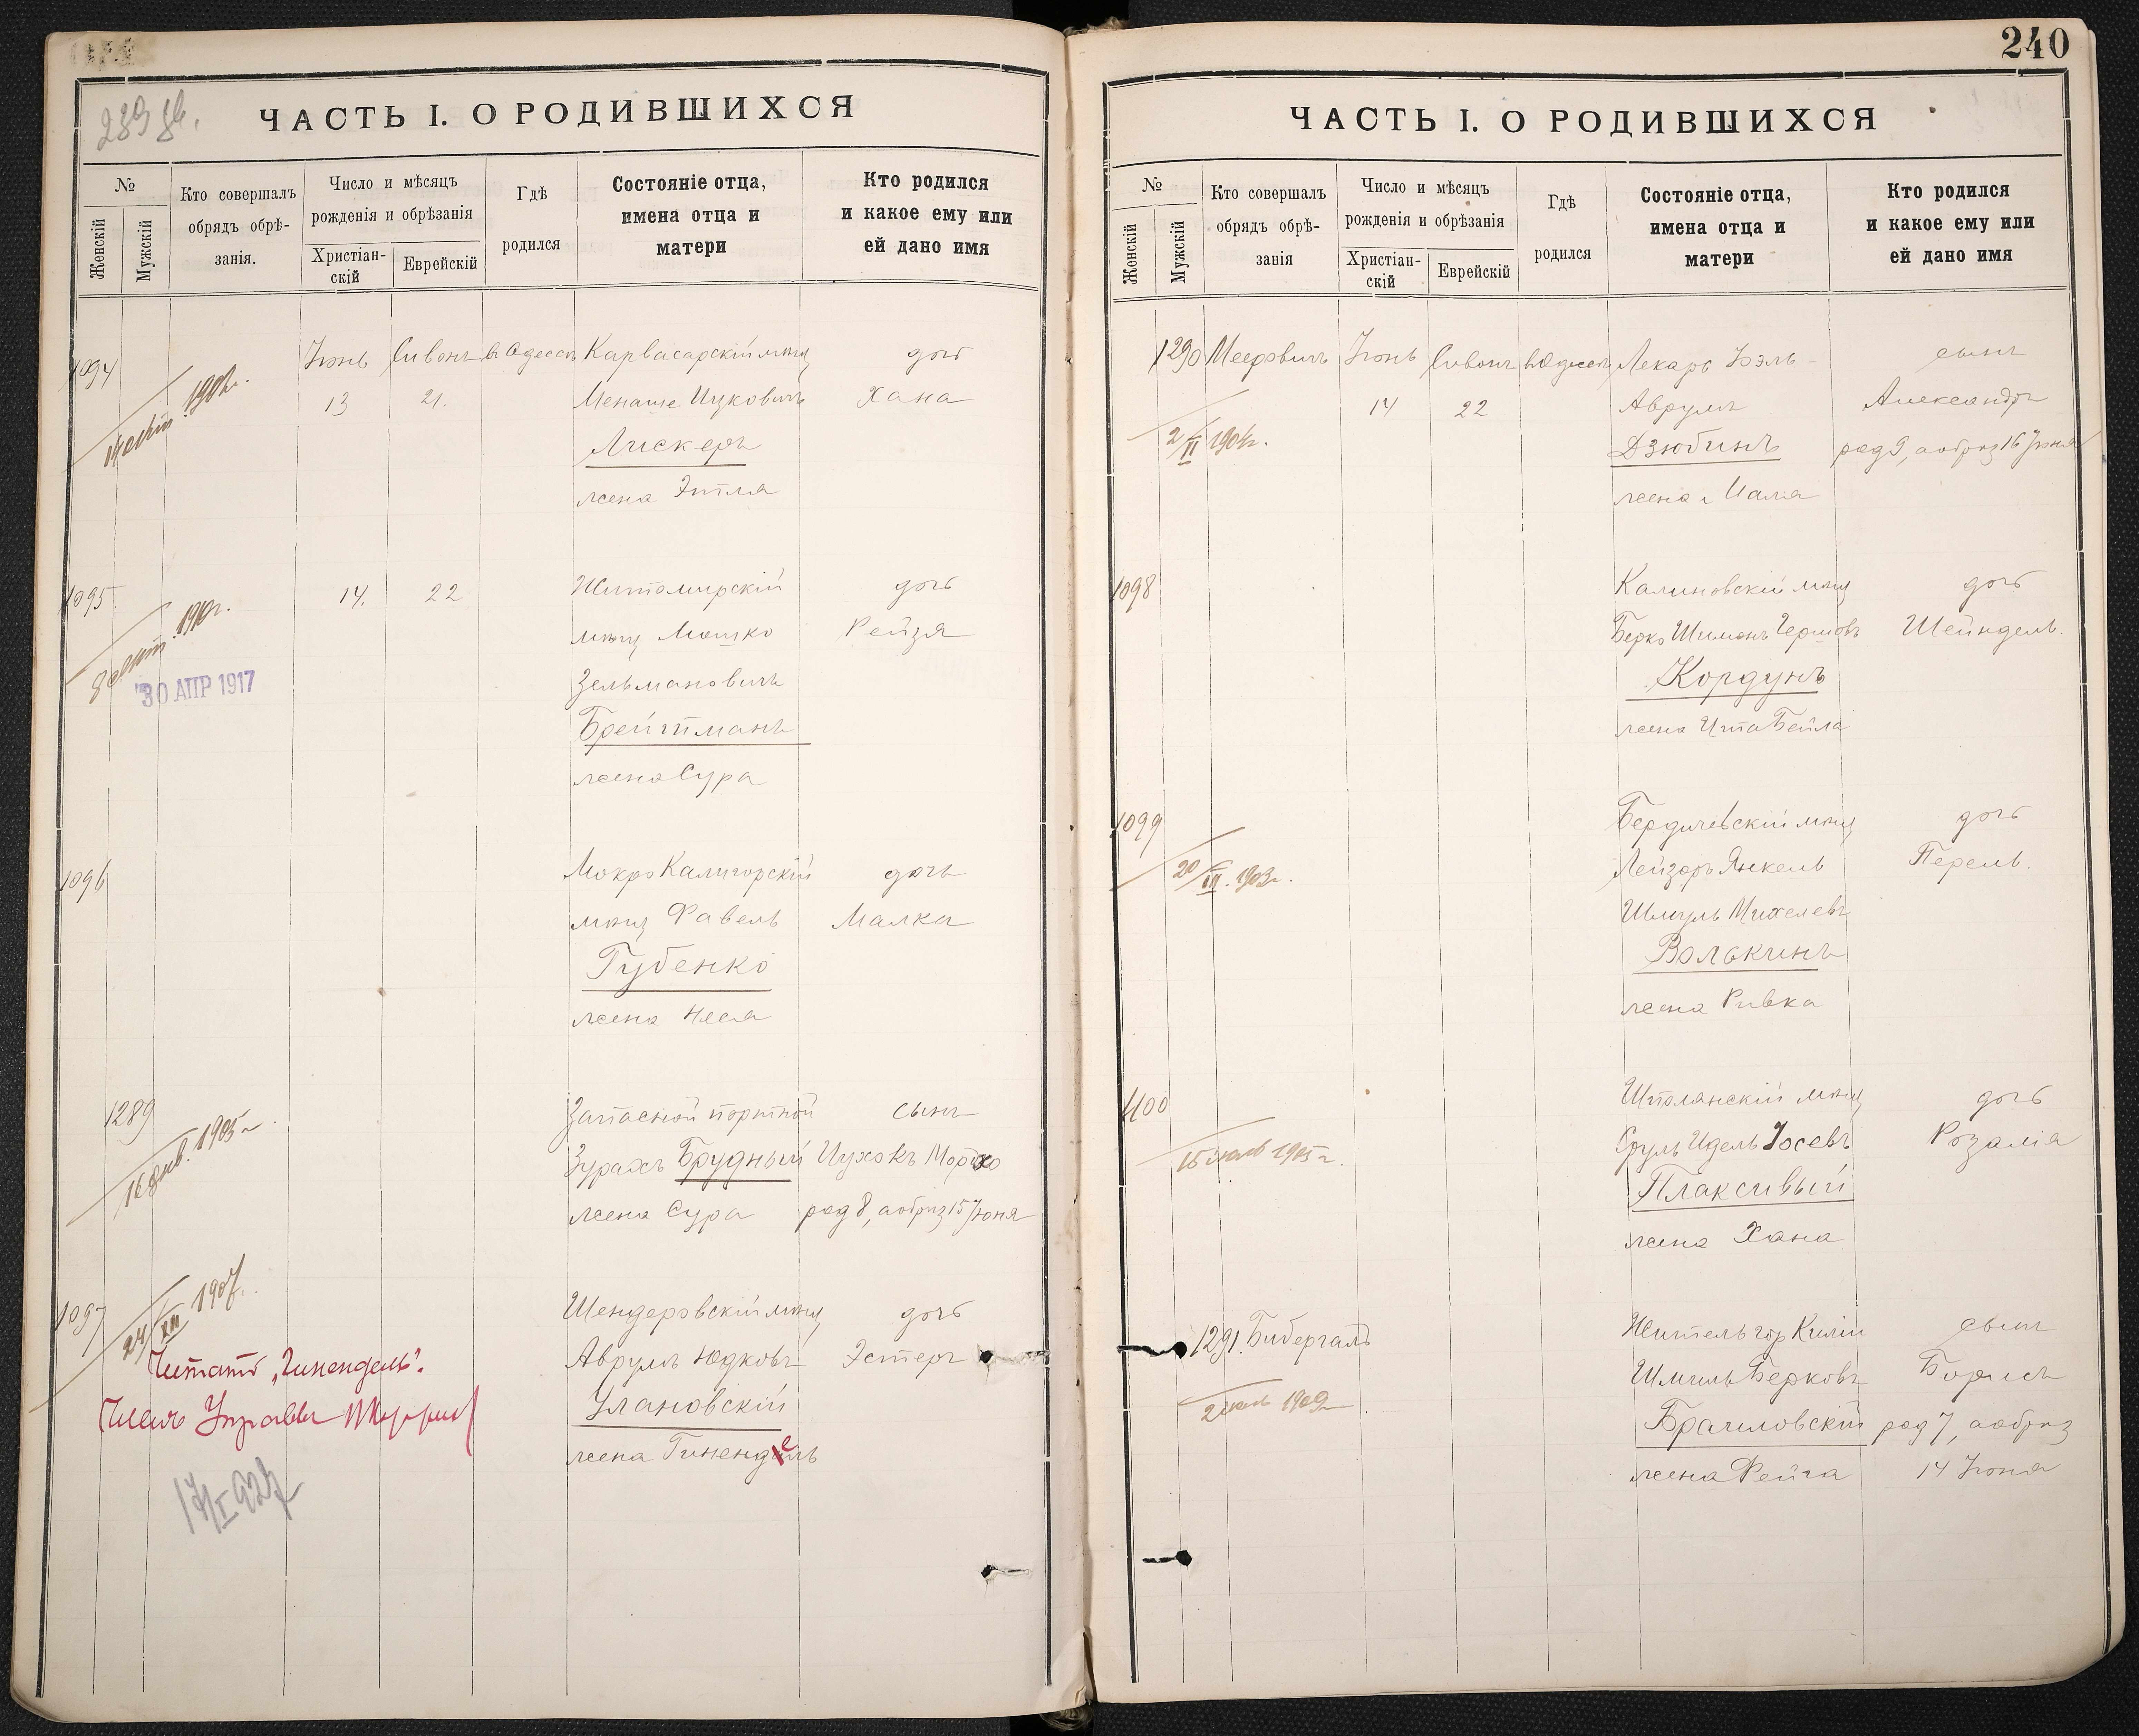 239 об.
ЧАСТЬ I. О РОДИВШИХСЯ
№
Женскій
Мужскій
Кто совершалъ
обрядъ обрѣ-
занія.
Число и мѣсяцъ
рожденія и обрѣзанія
Христіан-
скій
Еврейскій
Гдѣ
родился
Состояніе отца,
имена отца и
матери
Кто родился
и какое ему или
ей дано имя
1094
Іюнь Сивонъ въ Одессѣ Карвасарскій мѣщ дочь
13 21. Менаше Ицковичъ Хана
Лискеръ
жена Этля
1095
14. 22 Житомирскій дочь
мѣщ Мошко Рейзя
Зельмановичъ
30 АПР 1917
Брейтманъ
жена Сура
1096 Мокро Калигорскій дочь
мѣщ Фавель Малка
Губенко
жена Неся
1289 Запасной портной сынъ
Зурахъ Брудный Ицхокъ Мордхо
1905 г
жена Сура род 8, а обрѣз 15 Іюня
1097 24/XII 1907 г. Шендеровскій мѣщ дочь
Читать „Гинендель".
Аврумъ Юдковъ Эстеръ
Членъ Управы
Улановскій
жена Гинендель
17/I 927
240
ЧАСТЬ I. О РОДИВШИХСЯ
№
Женскій
Мужскій
Кто совершалъ
обрядъ обрѣ-
занія
Число и мѣсяцъ
рожденія и обрѣзанія
Христіан-
скій
Еврейскій
Гдѣ
родился
Состояніе отца,
имена отца и
матери
Кто родился
и какое ему или
ей дано имя
1290 Мееровичъ Іюнь Сивонъ въ Одессѣ Лекарь Іоэль - сынъ
14 22 Аврумъ Александръ
Дзюбинъ род 9, а обрѣз 16 Іюня
жена
1098 Калиновскій мѣщ дочь
Берко Шимонъ Гершовъ Шейндель.
Кордунъ
жена Ита Бейла
1099 Бердичевскій мѣщ дочь
Лейзоръ Янкель Перель.
Шмуль Михелевъ
Волькинъ
жена Ривка
1100 Шполянскій мѣщ дочь
Сруль Идель Іосевъ Розалія
Плаксивый
жена Хана
1291. Бибергалъ Житель гор Киліи сынъ
Шмиль Берковъ Борисъ
1909 г
Браиловскій род 7, а обрѣз
жена Фейга 14 Іюня